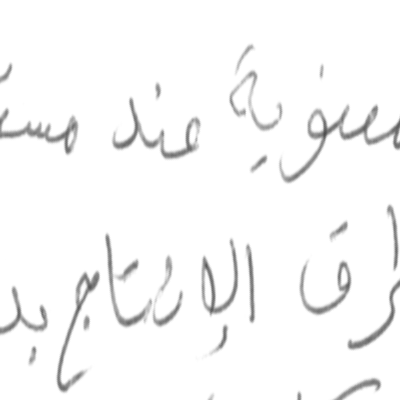 معنوية عند مستو
طرق الإنتاج بد